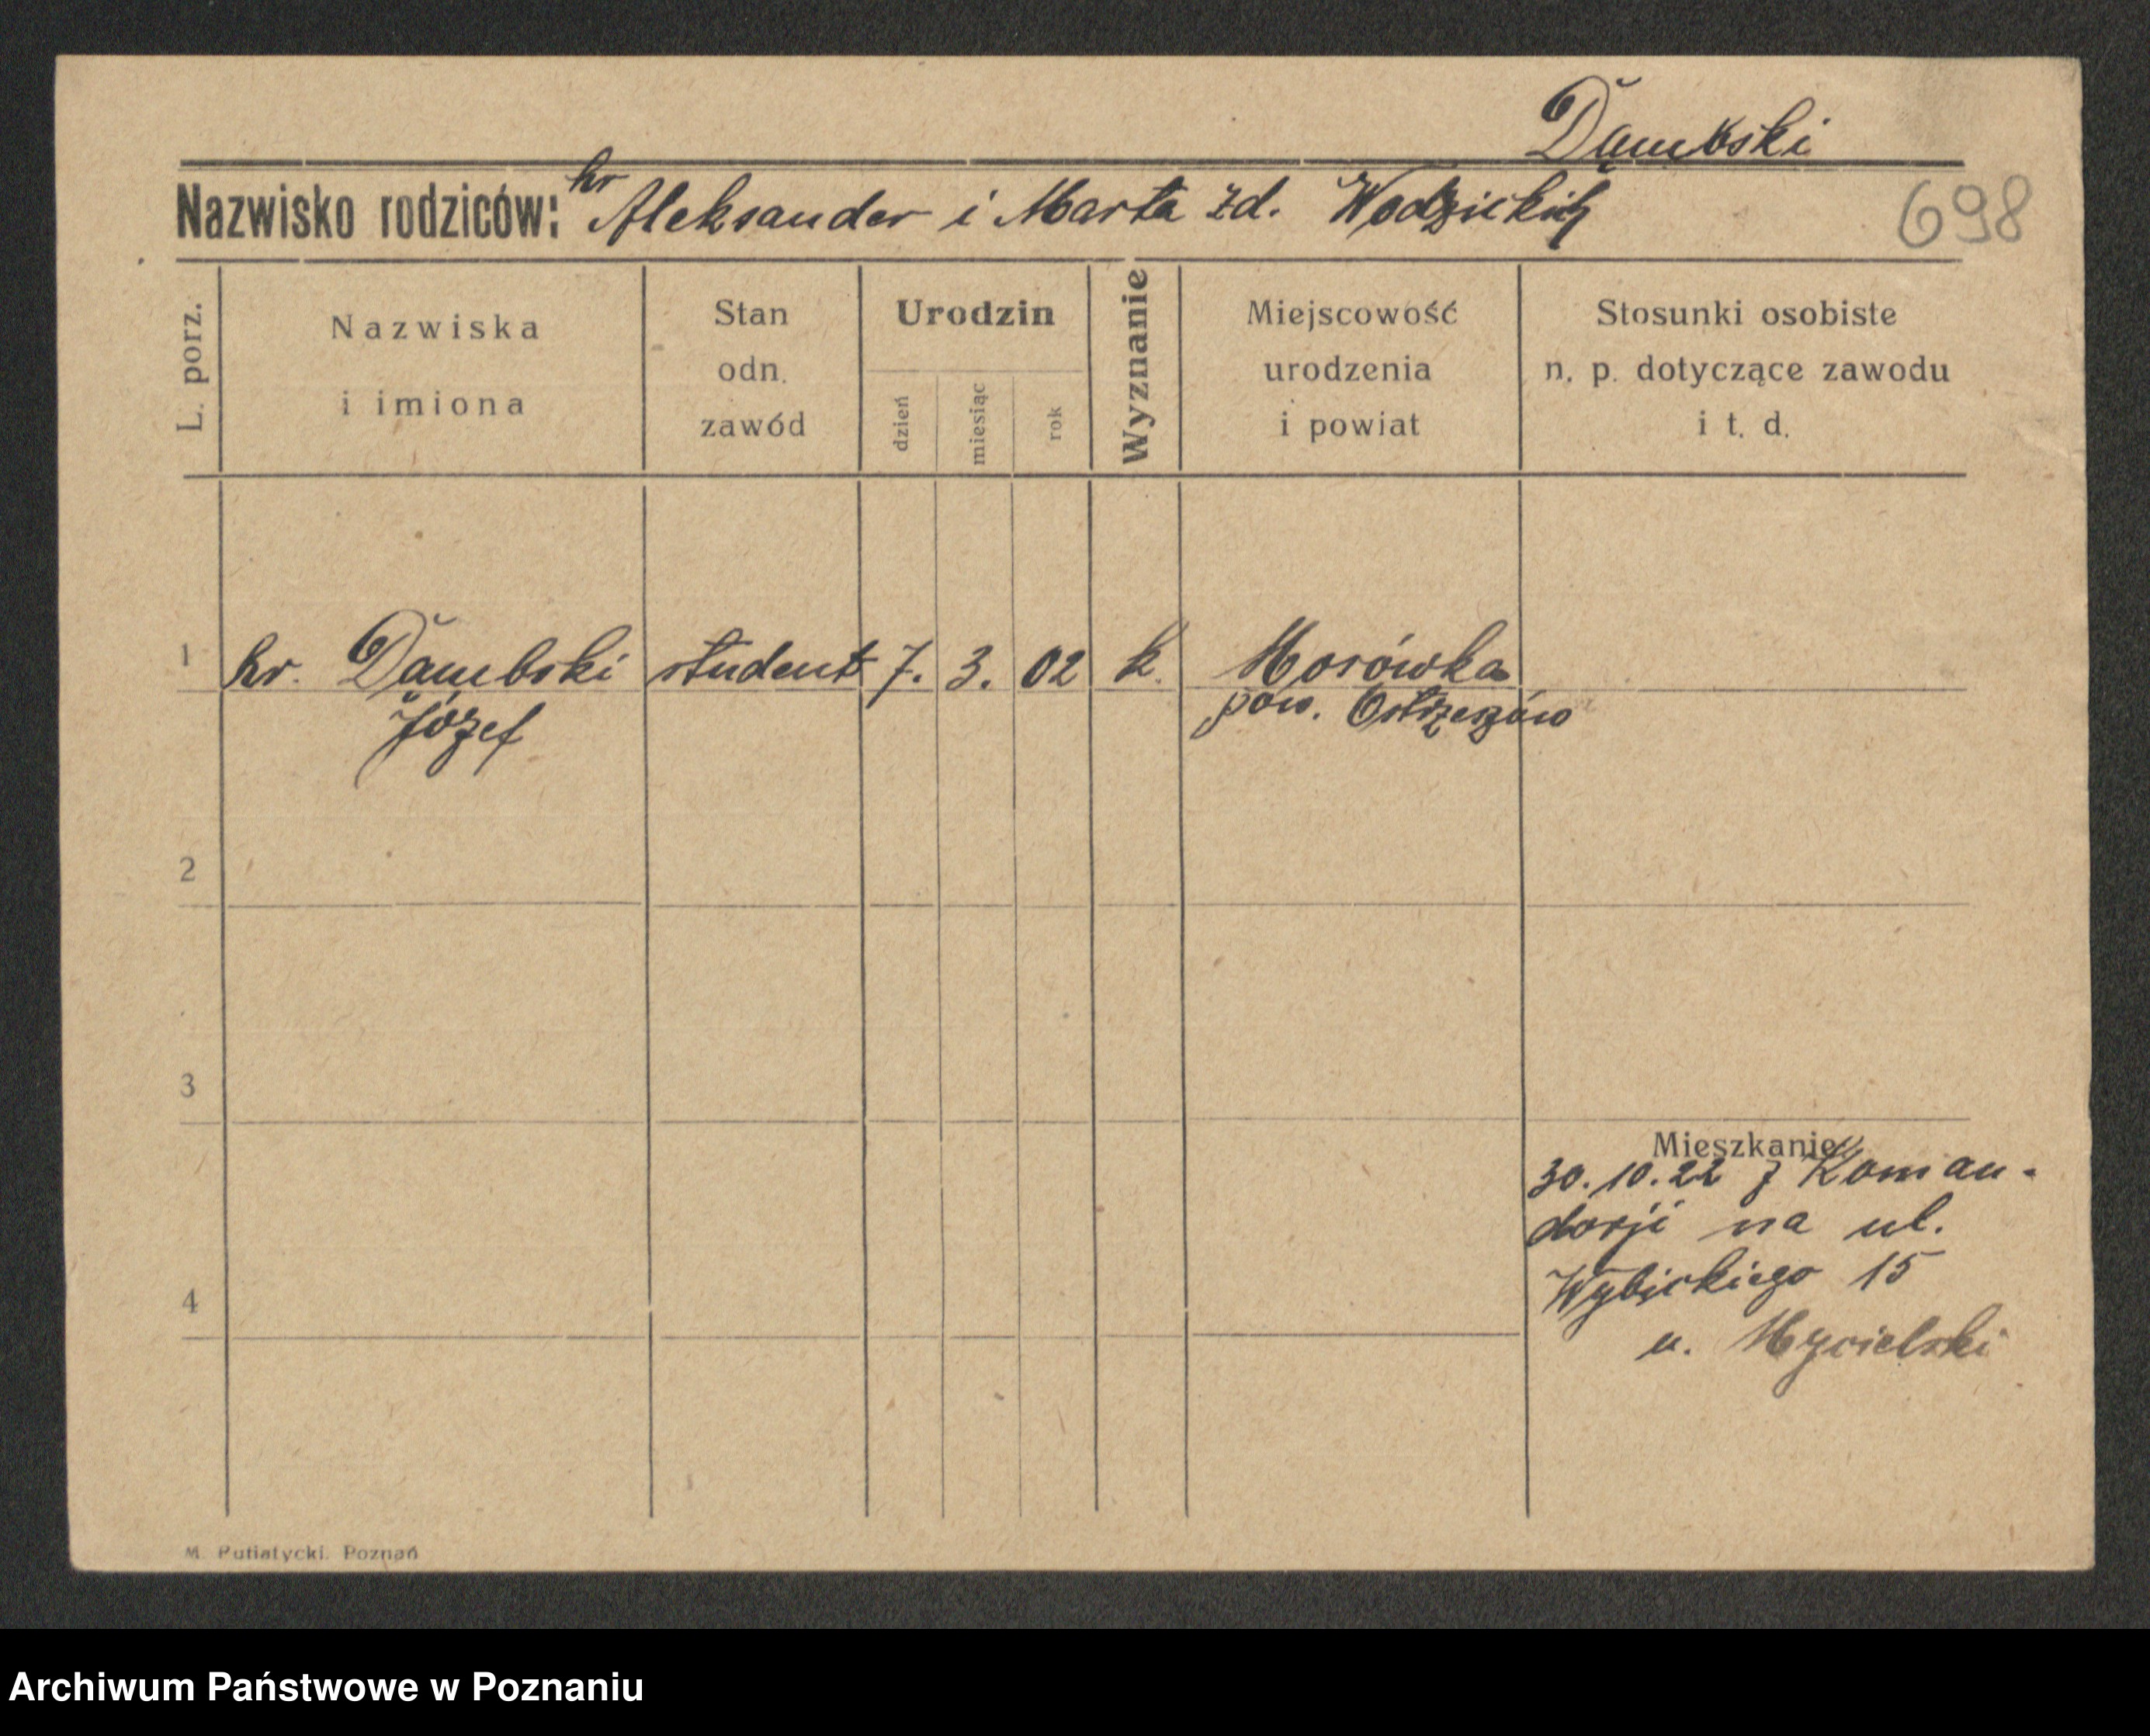 Dąmbski
Nazwisko rodziców: hr Aleksander i Marta zd. Wodzickich
698
L. porz.
Nazwiska
i imiona
Stan
odn.
zawód
Urodzin
dzień
miesiąc
rok
Wyznanie
Miejscowość
urodzenia
i powiat
Stosunki osobiste
n. p. dotyczące zawodu
i t. d.
1 hr. Dąmbski student 7. 3. 02 k.
Józef
pow. Ostrzeszów
2
3
4
Mieszkanie
30.10.22 z Koman-
dorji na ul.
Wybickiego 15
u. Mycielski
M. Putiatycki. Poznań
Archiwum Państwowe w Poznaniu